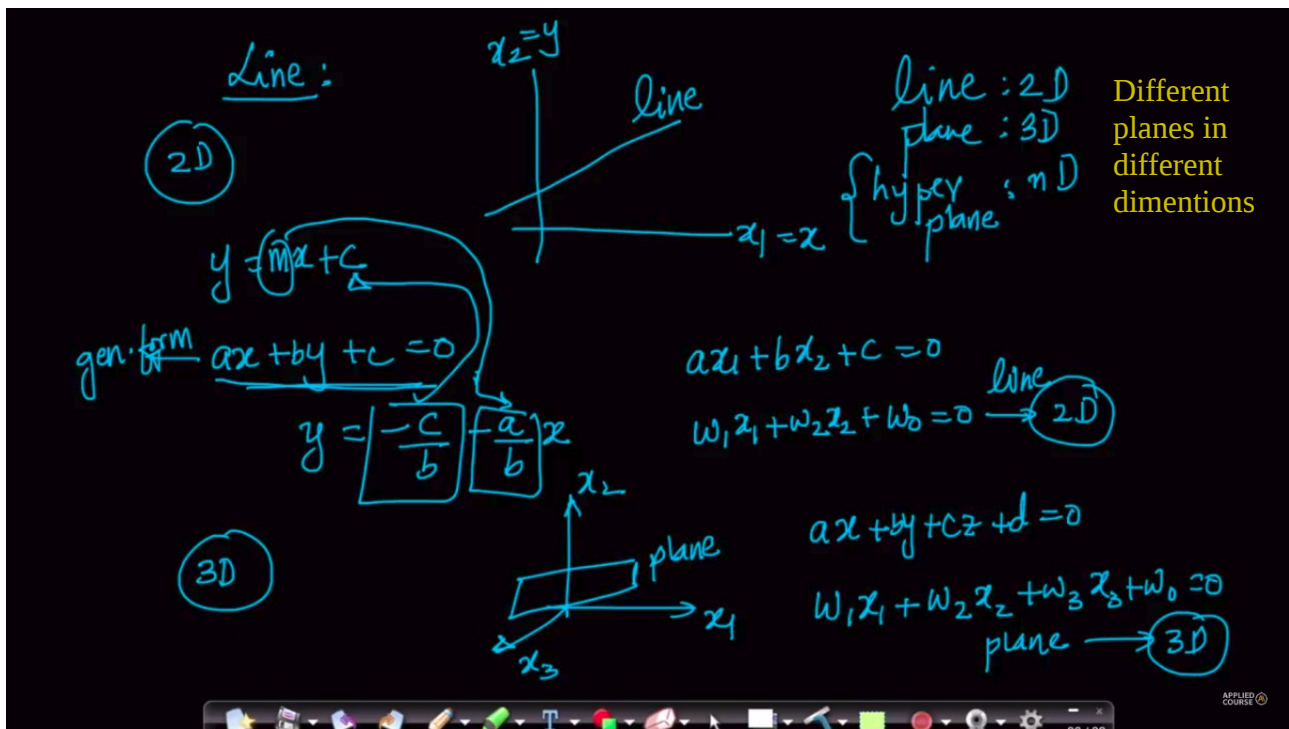 Line :
2D
x₂=y
line
x₁ =x
line : 2D
plane : 3D
{hyper plane : nD
Different
planes in
different
dimentions
y = mx+c
gen. form ← ax +by +c =0
y = -c/b -a/b x
ax₁ +bx₂ +c =0
w₁x₁ +w₂x₂ +w₀ =0 line → 2D
3D
x₂
plane
x₁
x₃
ax +by+cz +d =0
w₁x₁ + w₂x₂ +w₃x₃+w₀ =0
plane → 3D
APPLIED
COURSE
T